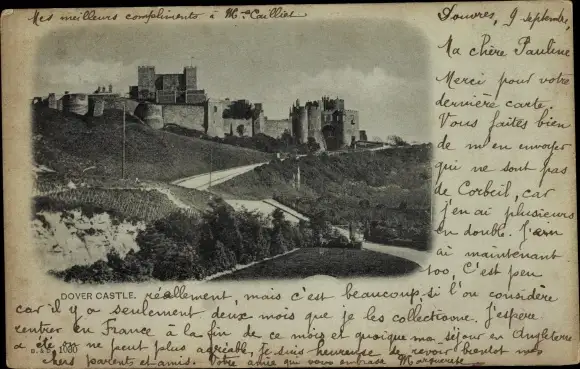 Mes meilleurs compliments à Mme Cailliet
Douvres, 9 septembre,
Ma chère Pauline
Merci pour votre
dernière carte.
Vous faites bien
de m'en envoyer
qui ne sont pas
de Corbeil, car
j'en ai plusieurs
en double. J'en
ai maintenant
100, C'est peu
DOVER CASTLE.
réellement, mais c'est beaucoup, si l'on considère
car il y a seulement deux mois que je les collectionne. J'espère
rentrer en France à la fin de ce mois et quoique mon séjour en Angleterre
a été on ne peut plus agréable, je suis heureuse de revoir bientôt mes
1030
chers parents et amis. Votre amie qui vous embrasse Marguerite